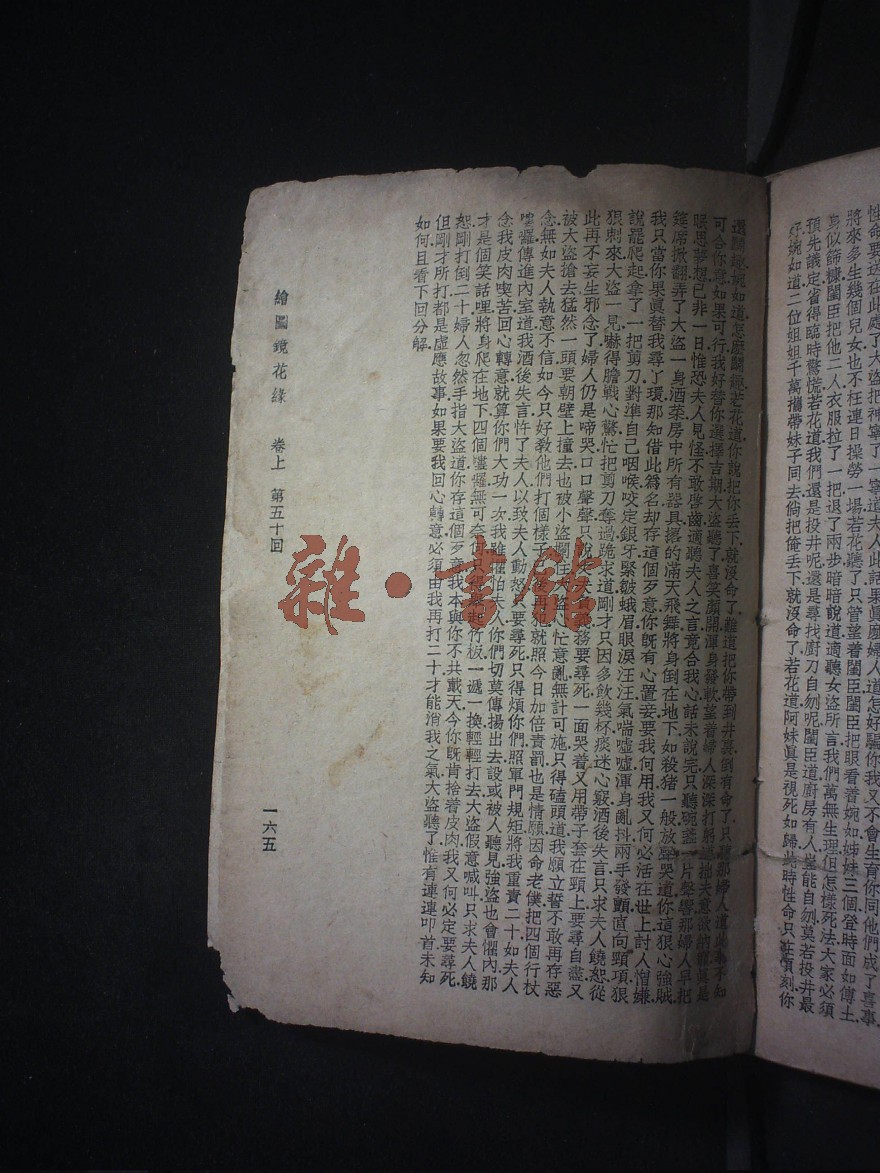 性命要送在此處了大盜把神寧了一寧道夫人此話果眞麼婦人道怎好騙你我又不會生育你同他們成了喜事
將來多生幾個兒女也不枉連日操勞一場若花聽了只管望着閨臣閨臣把眼看着婉如姊妹三個登時面如傅土
身似篩糠閨臣把他二人衣服拉了一把退了兩步暗暗說道適聽女盜所言我們萬無生理但怎樣死法大家必須
預先議定省得臨時驚慌若花道我們還是投井呢還是尋找廚刀自刎呢閨臣道廚房有人豈能自刎莫若投井最
好婉如道二位姐姐千萬攜帶妹子同去倘把俺丟下就沒命了若花道阿妹眞是視死如歸此時性命只在頃刻你
還鬬趣婉如道怎麼鬬趣若花道你說把你丟下就沒命了難道把你帶到井裏倒有命了只聽那婦人道此事不知
可合你意如果可行我好替你選擇吉期大盜聽了喜笑顏開渾身發軟望着婦人深深打躬道拙夫意欲納寵眞是
眠思夢想已非一日惟恐夫人見怪不敢啓齒適聽夫人之言竟合我心話未說完只聽碗盞一片聲響那婦人早把
筵席掀翻弄了大盜一身酒菜房中所有器具撂的滿天飛舞將身倒在地下如殺猪一般放聲哭道你這狠心強賊
我只當你果眞替我尋了環那知借此爲名却存這個歹意你旣有心置妾要我何用我又何必活在世上討人憎嫌
說罷爬起拿了一把剪刀對準自己咽喉咬定銀牙緊皺蛾眉眼淚汪汪氣喘噓噓渾身亂抖兩手發顫直向頸項狠
狠刺來大盜一見嚇得膽戰心驚忙把剪刀奪過跪求道剛才只因多飲幾杯痰迷心竅酒後失言只求夫人饒恕從
此再不妄生邪念了婦人仍是啼哭口口聲聲只說丈夫負義務要尋死一面哭着又用帶子套在頸上要尋自盡又
被大盜搶去猛然一頭要朝壁上撞去也被小盜攔住大盜心忙意亂無計可施只得磕頭道我願立誓不敢再存惡
念無如夫人執意不信如今只好教他們打個樣子以後再犯就照今日加倍責罰也是情願因命老僕把四個行杖
嘍囉傳進內室道我酒後失言忤了夫人以致夫人動怒只要尋死只得煩你們照軍門規矩將我重責二十如夫人
念我皮肉喫苦回心轉意就算你們大功一次我雖懼怕夫人你們切莫傳揚出去設或被人聽見強盜也會懼內那
才是個笑話哩將身爬在地下四個嘍囉無可奈何只得舉起竹板一遞一換輕輕打去大盜假意喊叫只求夫人饒
恕剛打倒二十婦人忽然手指大盜道你存這個歹意我本與你不共戴天今你旣肯捨着皮肉我又何必定要尋死
但剛才所打都是虛應故事如果要我回心轉意必須由我再打二十才能消我之氣大盜聽了惟有連連叩首未知
如何且看下回分解
繪圖鏡花緣 卷上 第五十回 一六五
雜·書館